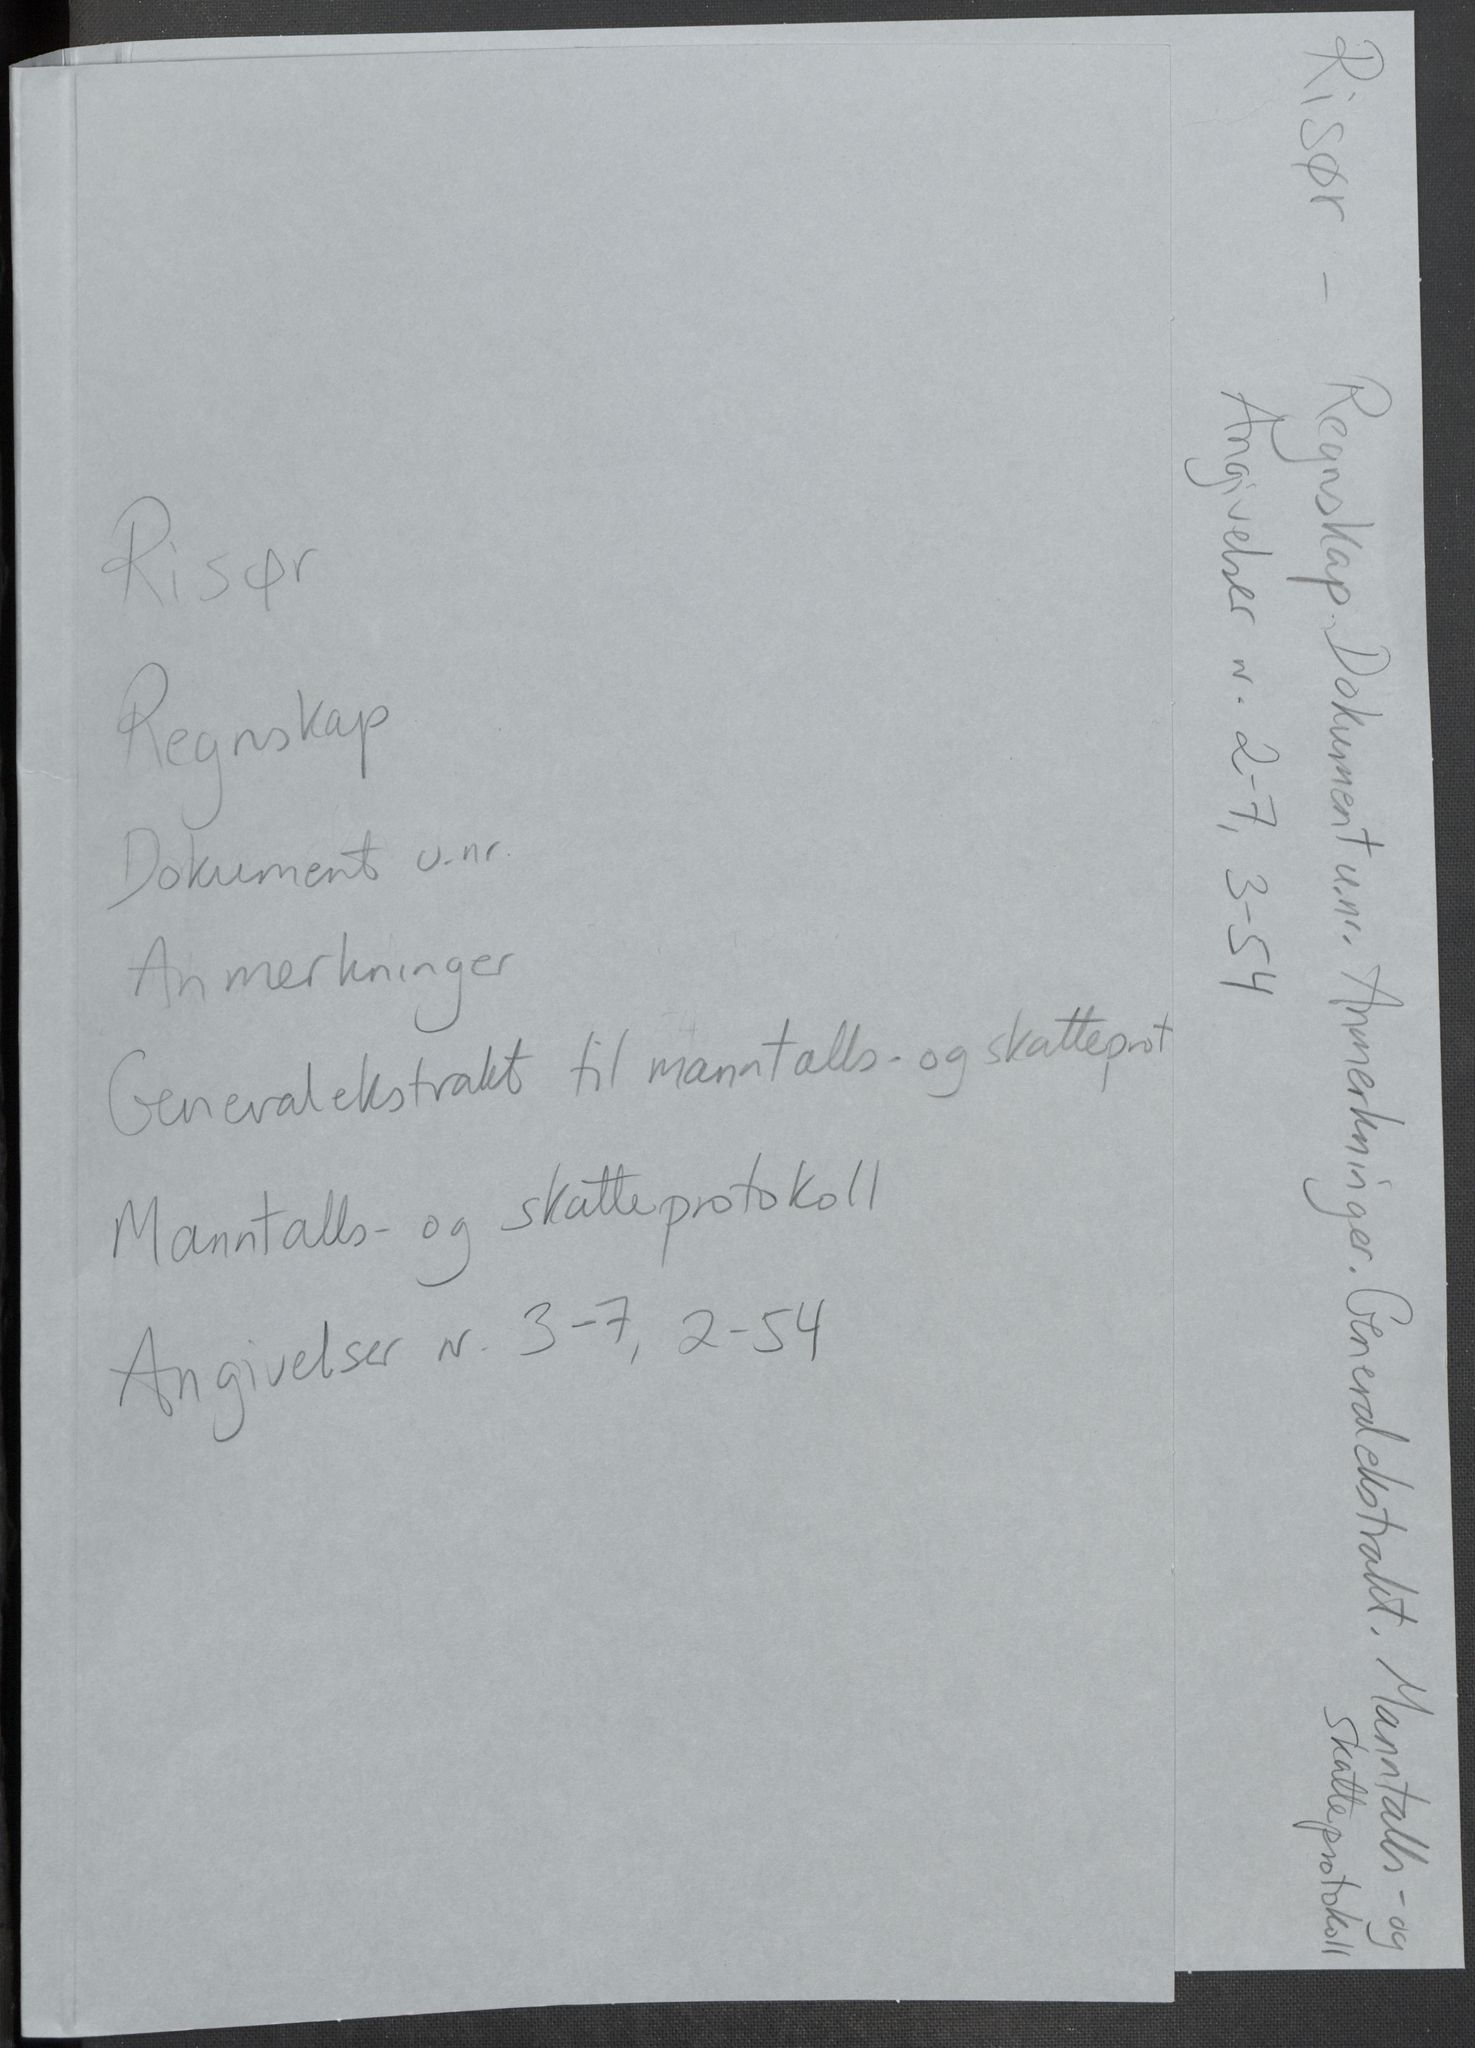 Risør
Regnskap
Dokument u.nr.
Anmerkninger
Generalekstrakt til manntalls- og skatteprot
Manntalls- og skatteprotokoll
Angivelser nr. 3-7, 2-54
Risør - Regnskap. Dokument u.nr. Anmerkninger. Generalekstrakt. Manntalls- og
skatteprotokoll
Angivelser nr. 2-7, 3-54